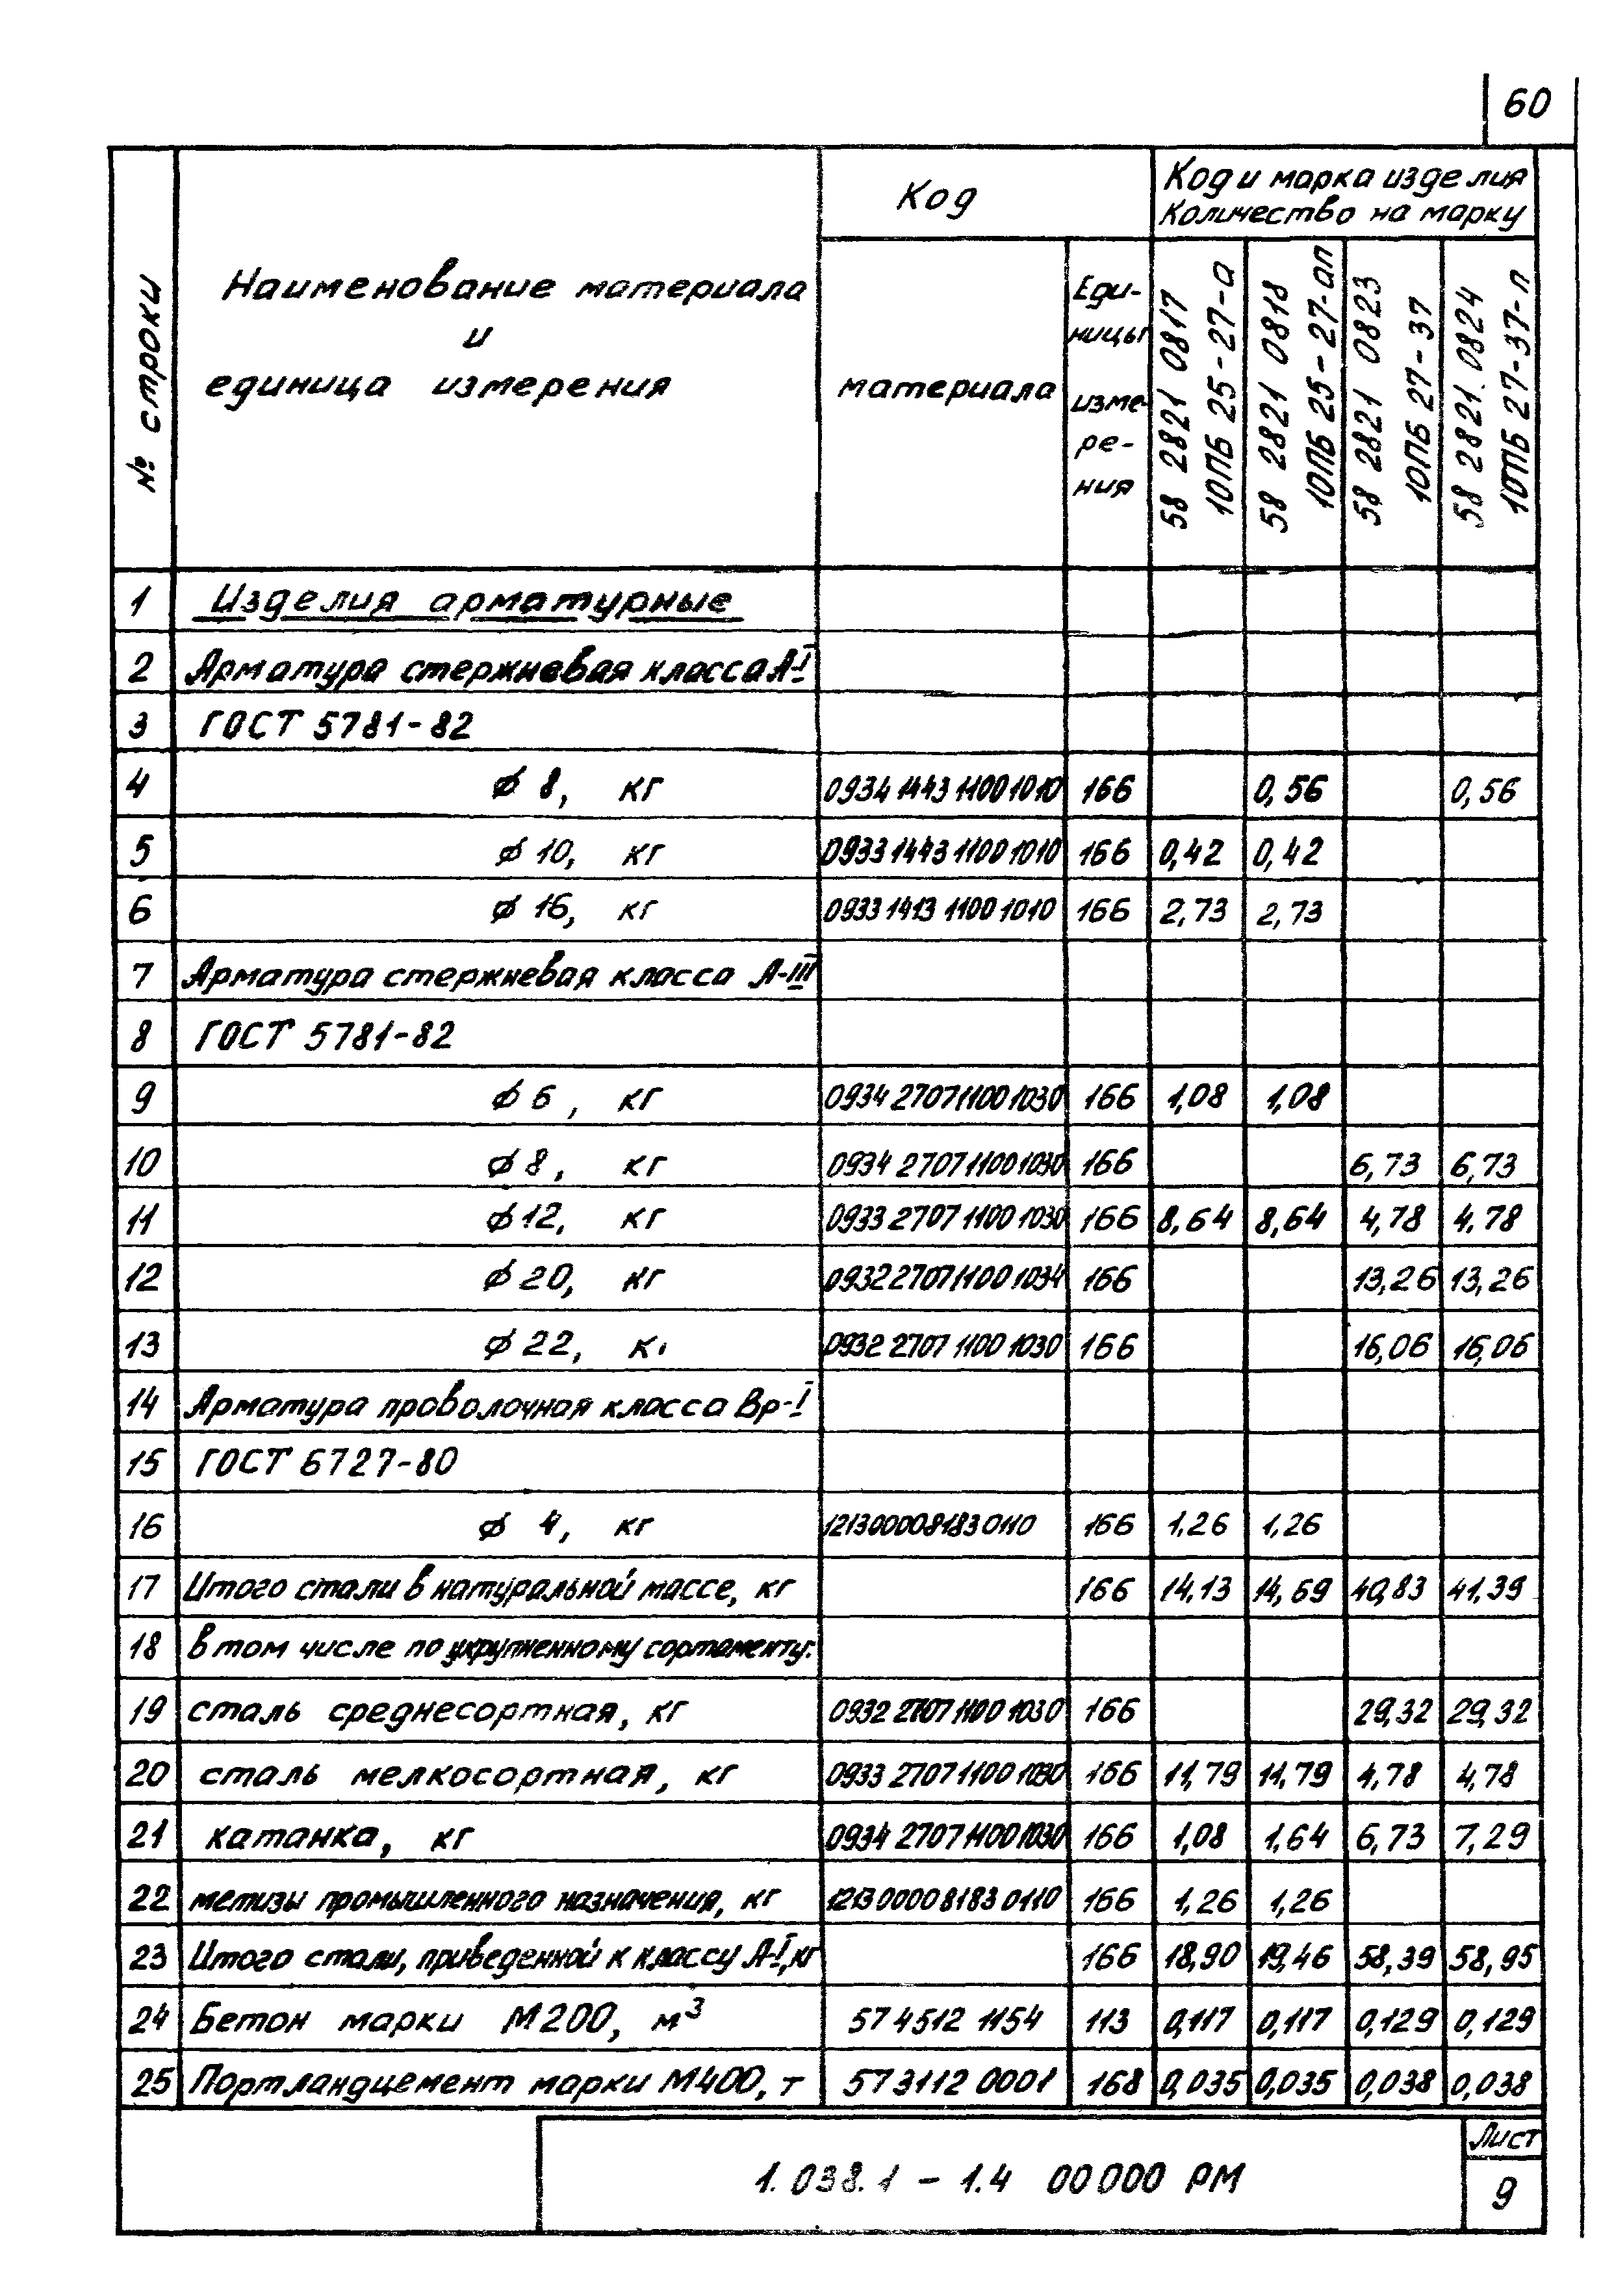 60
№ строки
Наименование материала
и
единица измерения
Код
материала
Еди-
ницы
изме-
ре-
ния
Код и марка изделия
Количество на марку
58 2821 0817
10ПБ 25-27-а
58 2821 0818
10ПБ 25-27-ап
58 2821 0823
10ПБ 27-37
58 2821.0824
10ПБ 27-37-п
1 Изделия арматурные
2 Арматура стержневая класса А-I
3 ГОСТ 5781-82
4 ϕ 8, кг 0934 1443 1100 1010 166 0,56 0,56
5 ϕ 10, кг 0933 1443 1100 1010 166 0,42 0,42
6 ϕ 16, кг 0933 1413 1100 1010 166 2,73 2,73
7 Арматура стержневая класса А-III
8 ГОСТ 5781-82
9 ϕ 6, кг 0934 2707 1100 1030 166 1,08 1,08
10 ϕ 8, кг 0934 2707 1100 1030 166 6,73 6,73
11 ϕ 12, кг 0933 2707 1100 1030 166 8,64 8,64 4,78 4,78
12 ϕ 20, кг 0932 2707 1100 1034 166 13,26 13,26
13 ϕ 22, кг 0932 2707 1100 1030 166 16,06 16,06
14 Арматура проволочная класса Вр-I
15 ГОСТ 6727-80
16 ϕ 4, кг 1213000081830110 166 1,26 1,26
17 Итого стали в натуральной массе, кг 166 14,13 14,69 40,83 41,39
18 в том числе по укрупненному сортаменту:
19 сталь среднесортная, кг 0932 2707 1100 1030 166 29,32 29,32
20 сталь мелкосортная, кг 0933 2707 1100 1030 166 11,79 11,79 4,78 4,78
21 катанка, кг 0934 2707 1100 1030 166 1,08 1,64 6,73 7,29
22 метизы промышленного назначения, кг 1213 0000 8183 0110 166 1,26 1,26
23 Итого стали, приведенной к классу А-I, кг 166 18,90 19,46 58,39 58,95
24 Бетон марки М200, м³ 574512 1154 113 0,117 0,117 0,129 0,129
25 Портландцемент марки М400, т 573112 0001 168 0,035 0,035 0,038 0,038
1.038.1-1.4 00000 РМ
Лист
9